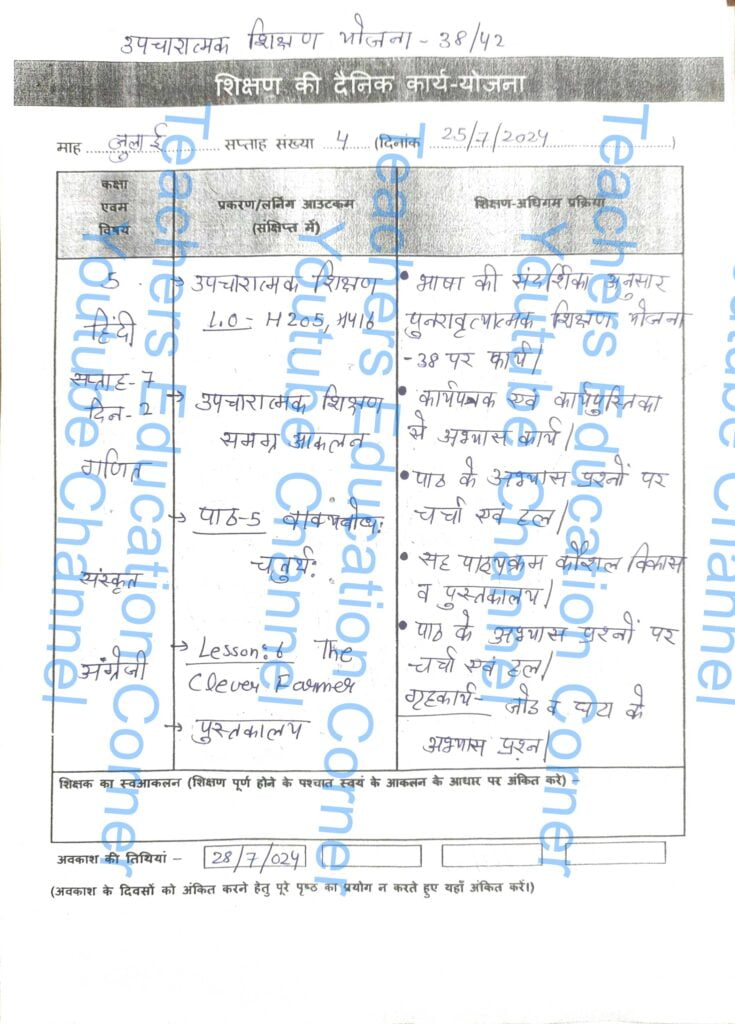 उपचारात्मक शिक्षण योजना - 38/42
शिक्षण की दैनिक कार्य-योजना
माह जुलाई सप्ताह संख्या 4 (दिनांक 25/7/2024)
कक्षा
एवम
विषय
प्रकरण/लर्निंग आउटकम
(संक्षिप्त में)
शिक्षण-अधिगम प्रक्रिया
5
हिंदी
सप्ताह-7
दिन-2
गणित
संस्कृत
अंग्रेजी
→ उपचारात्मक शिक्षण
L.O - H205, M416
→ उपचारात्मक शिक्षण
समग्र आकलन
→ पाठ-5
चतुर्थः
→ Lesson:6 The
Clever Farmer
→ पुस्तकालय
• भाषा की संदर्शिका अनुसार
पुनरावृत्यात्मक शिक्षण योजना
-38 पर कार्य।
• कार्यपत्रक एवं कार्यपुस्तिका
से अभ्यास कार्य।
• पाठ के अभ्यास प्रश्नों पर
चर्चा एवं हल।
• सह पाठ्यक्रम कौशल विकास
व पुस्तकालय।
• पाठ के अभ्यास प्रश्नों पर
चर्चा एवं हल।
गृहकार्य- जोड व घटा के
अभ्यास प्रश्न।
शिक्षक का स्वआकलन (शिक्षण पूर्ण होने के पश्चात स्वयं के आकलन के आधार पर अंकित करे) -
अवकाश की तिथियां - 28/7/024
(अवकाश के दिवसों को अंकित करने हेतु पूरे पृष्ठ का प्रयोग न करते हुए यहाँ अंकित करें।)
Teachers Education Corner
Youtube Channel
Teachers Education Corner
Youtube Channel
Teachers Education Corner
Youtube Channel